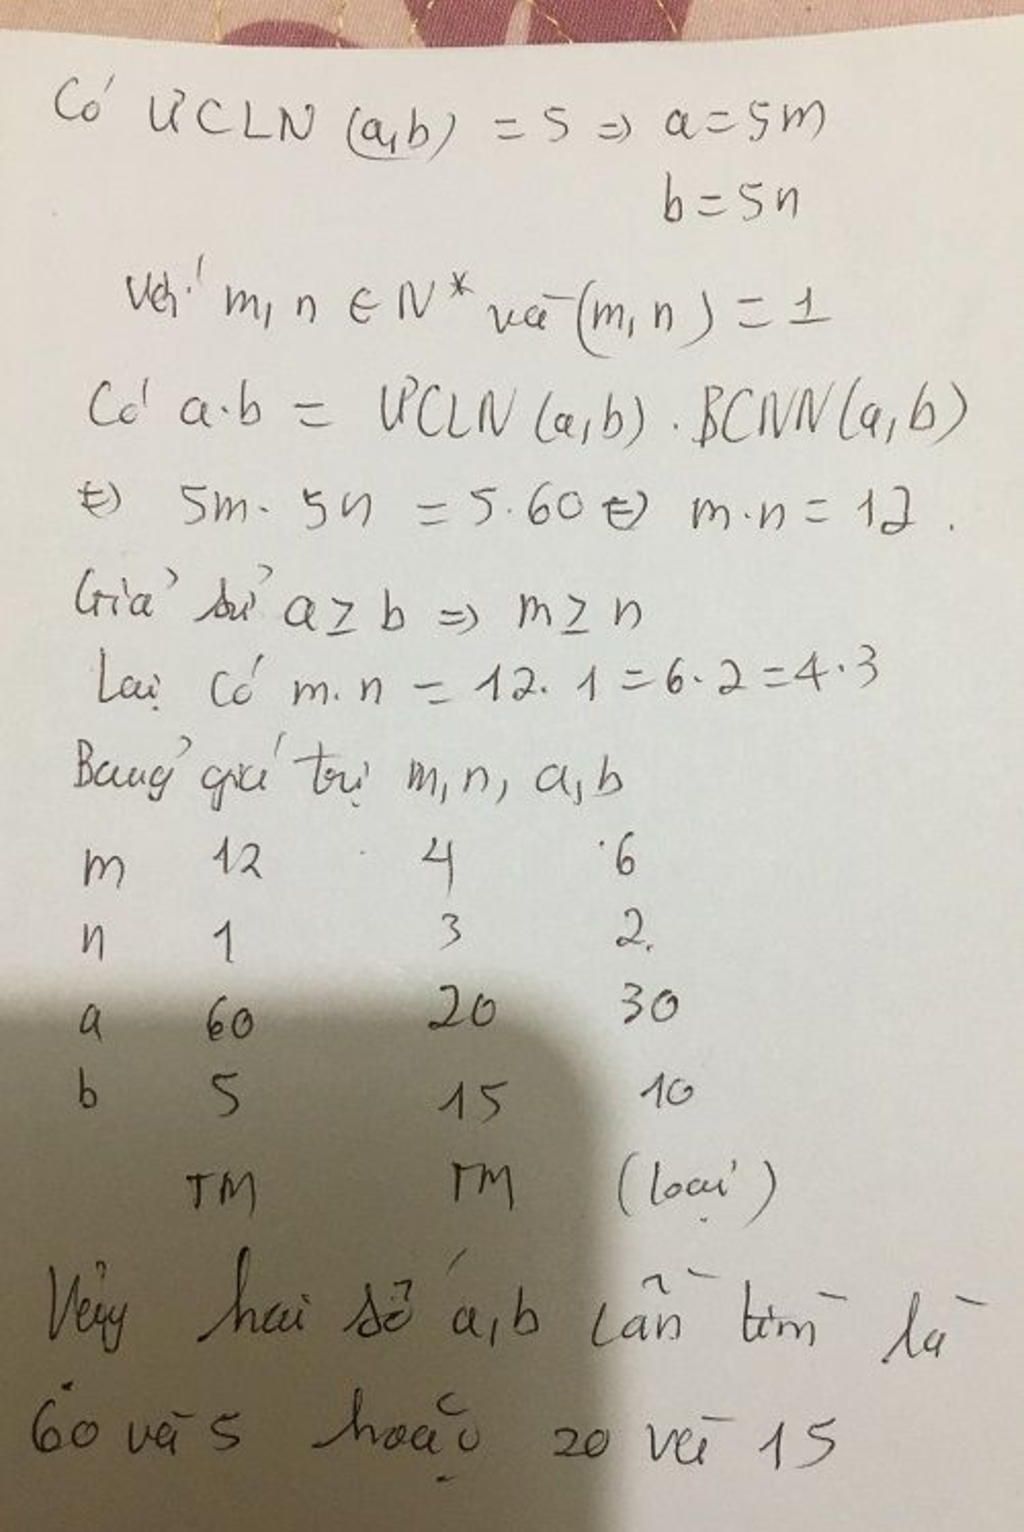 Có ƯCLN (a,b) = 5 => a = 5m
b = 5n
Với m, n ∈ N* và (m, n) = 1
Có a.b = ƯCLN (a,b) . BCNN (a,b)
<=> 5m . 5n = 5.60 <=> m.n = 12 .
Giả sử a ≥ b => m ≥ n
Lại có m.n = 12.1 = 6.2 = 4.3
Bảng giá trị m, n, a, b
m 12 4 6
n 1 3 2
a 60 20 30
b 5 15 10
TM TM (loại)
Vậy hai số a,b cần tìm là
60 và 5 hoặc 20 và 15